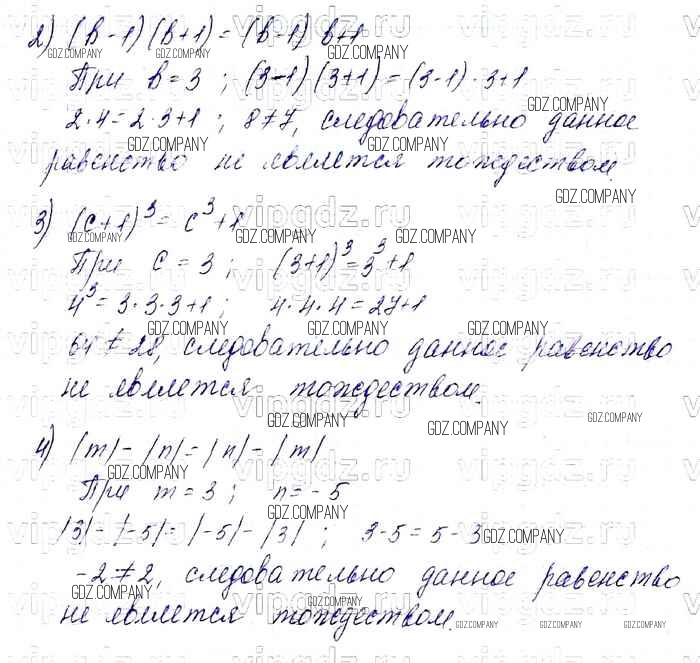 2) (b-1)(b+1)=(b-1) b+1
При b=3 ; (3-1)(3+1)=(3-1)·3+1
2·4=2·3+1 ; 8≠7, следовательно данное
равенство не является тождеством.
3) (c+1)³=c³+1
При c=3 ; (3+1)³=3³+1
4³=3·3·3+1 ; 4·4·4=27+1
64≠28, следовательно данное равенство
не является тождеством.
4) |m|-|n|=|n|-|m|
При m=3 ; n=-5
|3|-|-5|=|-5|-|3| ; 3-5=5-3
-2≠2, следовательно данное равенство
не является тождеством.
GDZ.COMPANY
vipgdz.ru